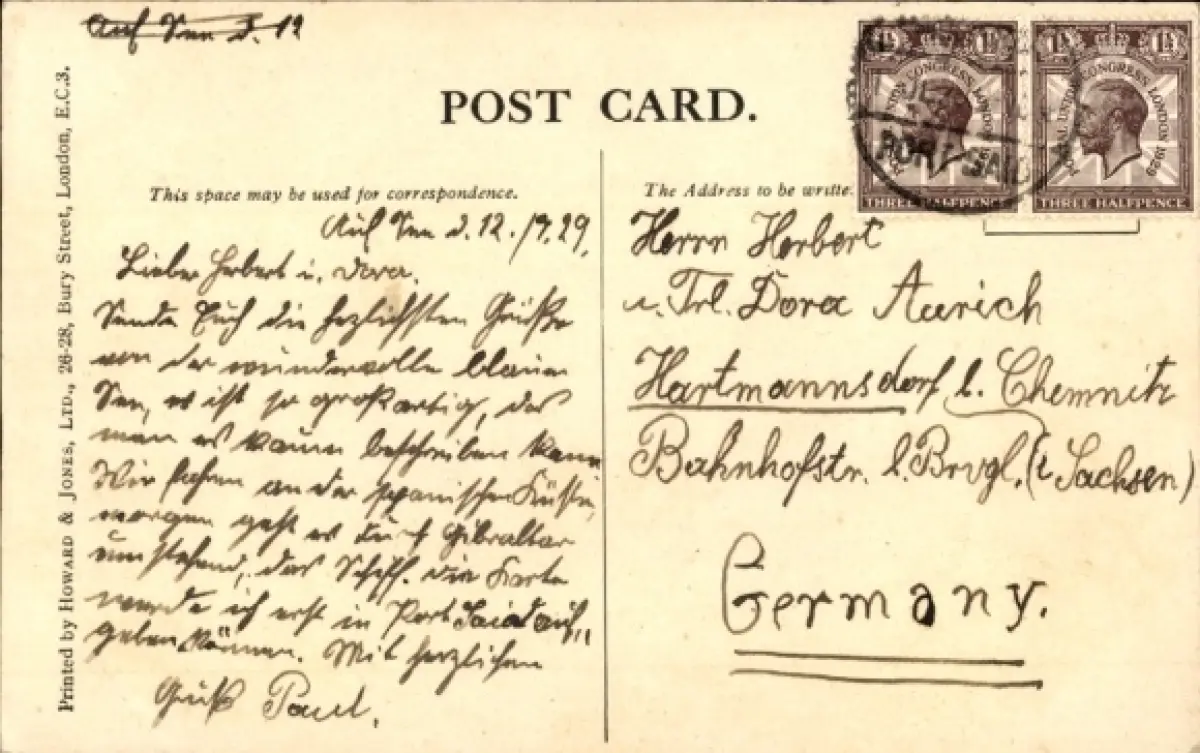 Auf See d. 12
POST CARD.
Printed by HOWARD & JONES, LTD., 26-28, Bury Street, London, E.C.3.
This space may be used for correspondence.
Auf See d. 12./7.29.
Lieber Herbert u. Dora.
Sende Euch die herzlichsten Grüße
von der wundervolle blauen
See, es ist so großartig, das
man es kaum beschreiben kann
Wir fahren an der spanischen Küste,
morgen geht es durch Gibraltar
umstehend, das Schiff. die Karte
werde ich erst in Port Said auf„
geben können. Mit herzlichen
Gruß Paul.
The Address to be writte
Herrn Herbert
u. Frl. Dora Aurich
Hartmannsdorf b. Chemnitz
Bahnhofstr. b. (i Sachsen)
Germany.
1½ 1½
POSTAL UNION CONGRESS LONDON 1929
THREE HALFPENCE
1½ 1½
POSTAL UNION CONGRESS LONDON 1929
THREE HALFPENCE
PORT SAID